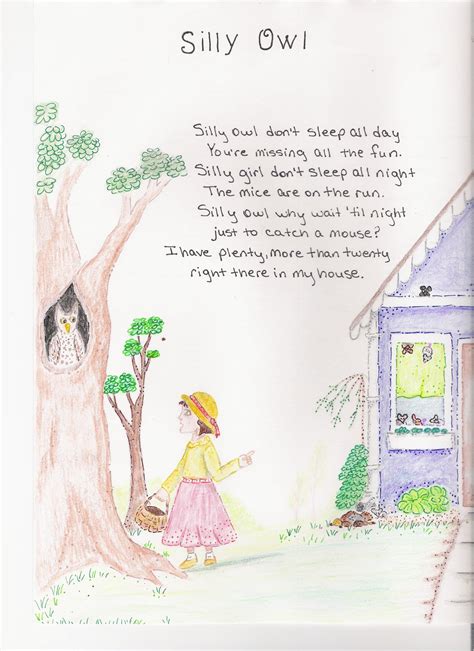 Silly Owl
Silly owl don't sleep all day
You're missing all the fun.
Silly girl don't sleep all night
The mice are on the run.
Silly Owl why wait 'til night
just to catch a mouse?
I have plenty, more than twenty
right there in my house.